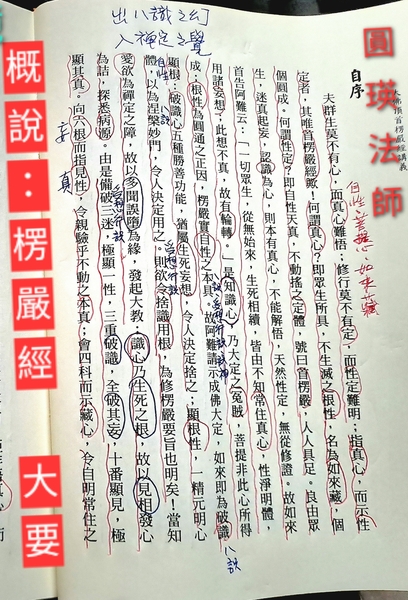 圓瑛法師
大佛頂首楞嚴經講義
自序
夫群生莫不有心,而真心難悟;修行莫不有定,而性定難明;指真心,而示性
定者,其唯首楞嚴經歟!何謂真心?即眾生所具,不生滅之根性,名為如來藏,個
個圓成。何謂性定?即自性天真,不動搖之定體,號曰首楞嚴,人人具足。良由眾
生,迷真起妄,認識為心,則本有真心,不能解悟,天然性定,無從修證。故如來
首告阿難云:「一切眾生,從無始來,生死相續,皆由不知常住真心,性淨明體,
用諸妄想,此想不真,故有輪轉。」是知識心,乃大定之冤賊,菩提非此心所得
成;根性為圓通之正因,楞嚴實自性之本具。故阿難請示成佛大定,如來即為破識
顯根:破識心五種勝善功能,猶屬生死妄想,令人決定捨之;顯根性,一精元明心
體,以為涅槃妙門,令人決定用之。則欲令捨識用根,為修楞嚴要旨也明矣!當知
愛欲為禪定之障,故以多聞誤墮為緣,發起大教;識心乃生死之根,故以見相發心
為詰,探悉病源。由是備破三迷,極顯一性,三重破識,全破其妄,十番顯見,極
顯其真。向六根而指見性,令親驗乎不動之本真;會四科而示藏心,令自明常住之
出八識之幻
入禪定之覺
自性菩提心如來藏
八識
妄 真
概說:楞嚴經 大要